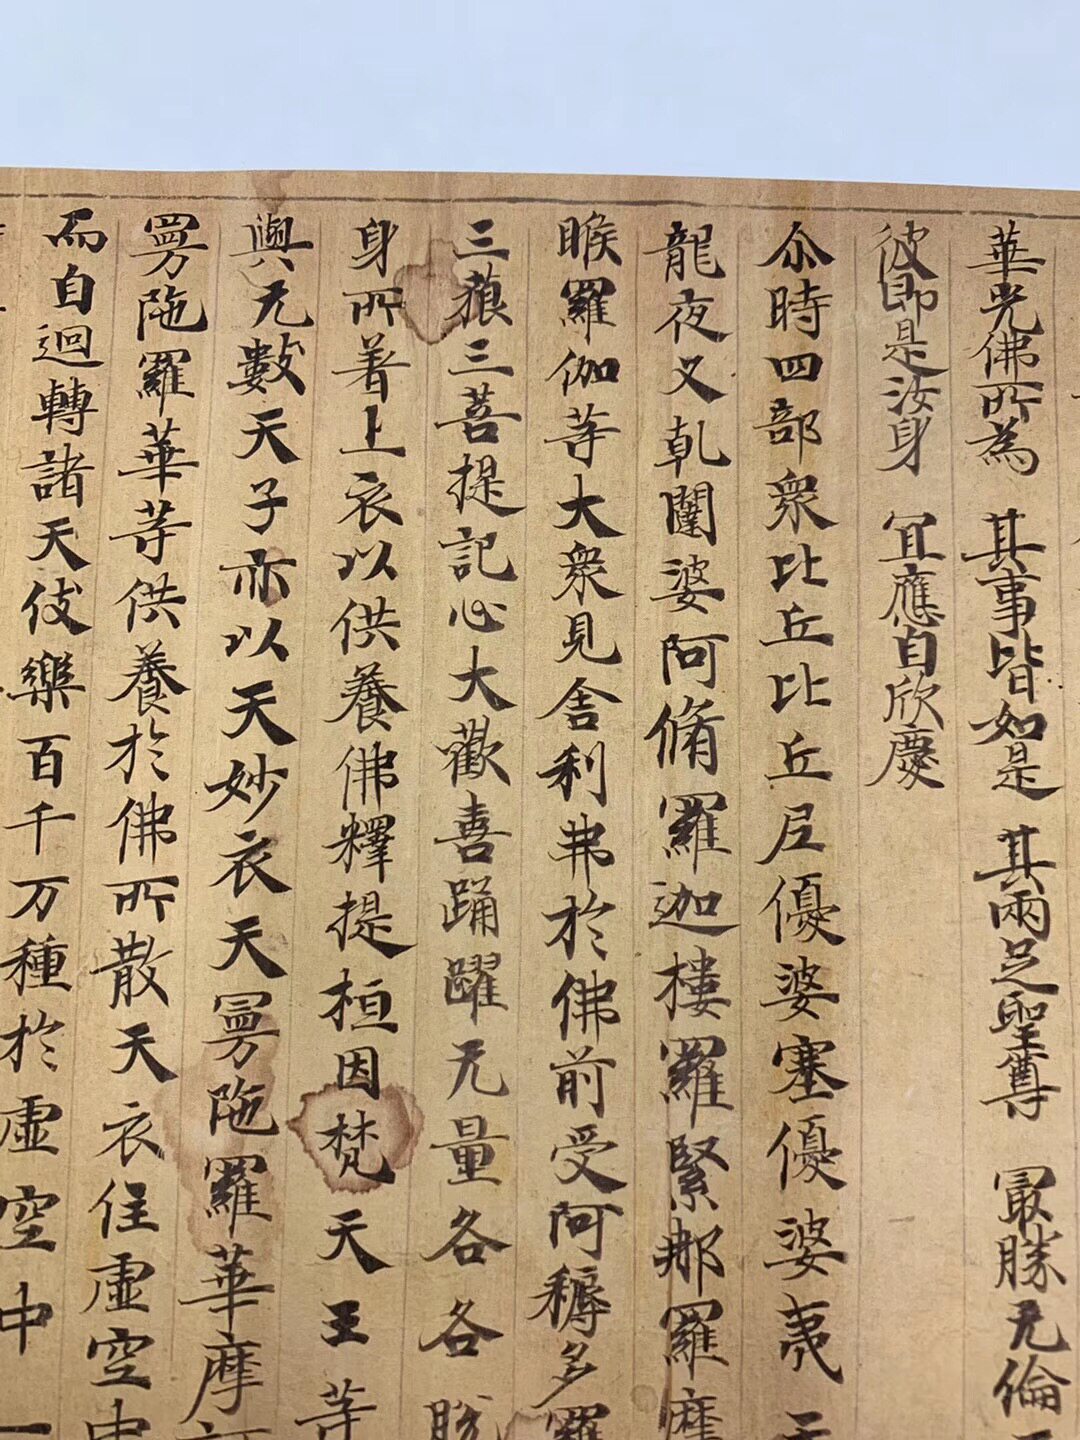 華光佛所為 其事皆如是 其兩足聖尊 冣勝无倫
彼即是汝身 冝應自欣慶
尒時四部衆比丘比丘尼優婆塞優婆夷天
龍夜叉乹闥婆阿脩羅迦樓羅緊那羅摩
睺羅伽䓁大衆見舍利弗於佛前受阿耨多羅
三藐三菩提記心大歡喜踊躍无量各各脫
身所著上衣以供養佛釋提桓因梵天王䓁
與无數天子亦以天妙衣天曼陁羅華摩訶
曼陁羅華䓁供養於佛所散天衣住虛空中
而自迴轉諸天伎樂百千万種於虛空中一